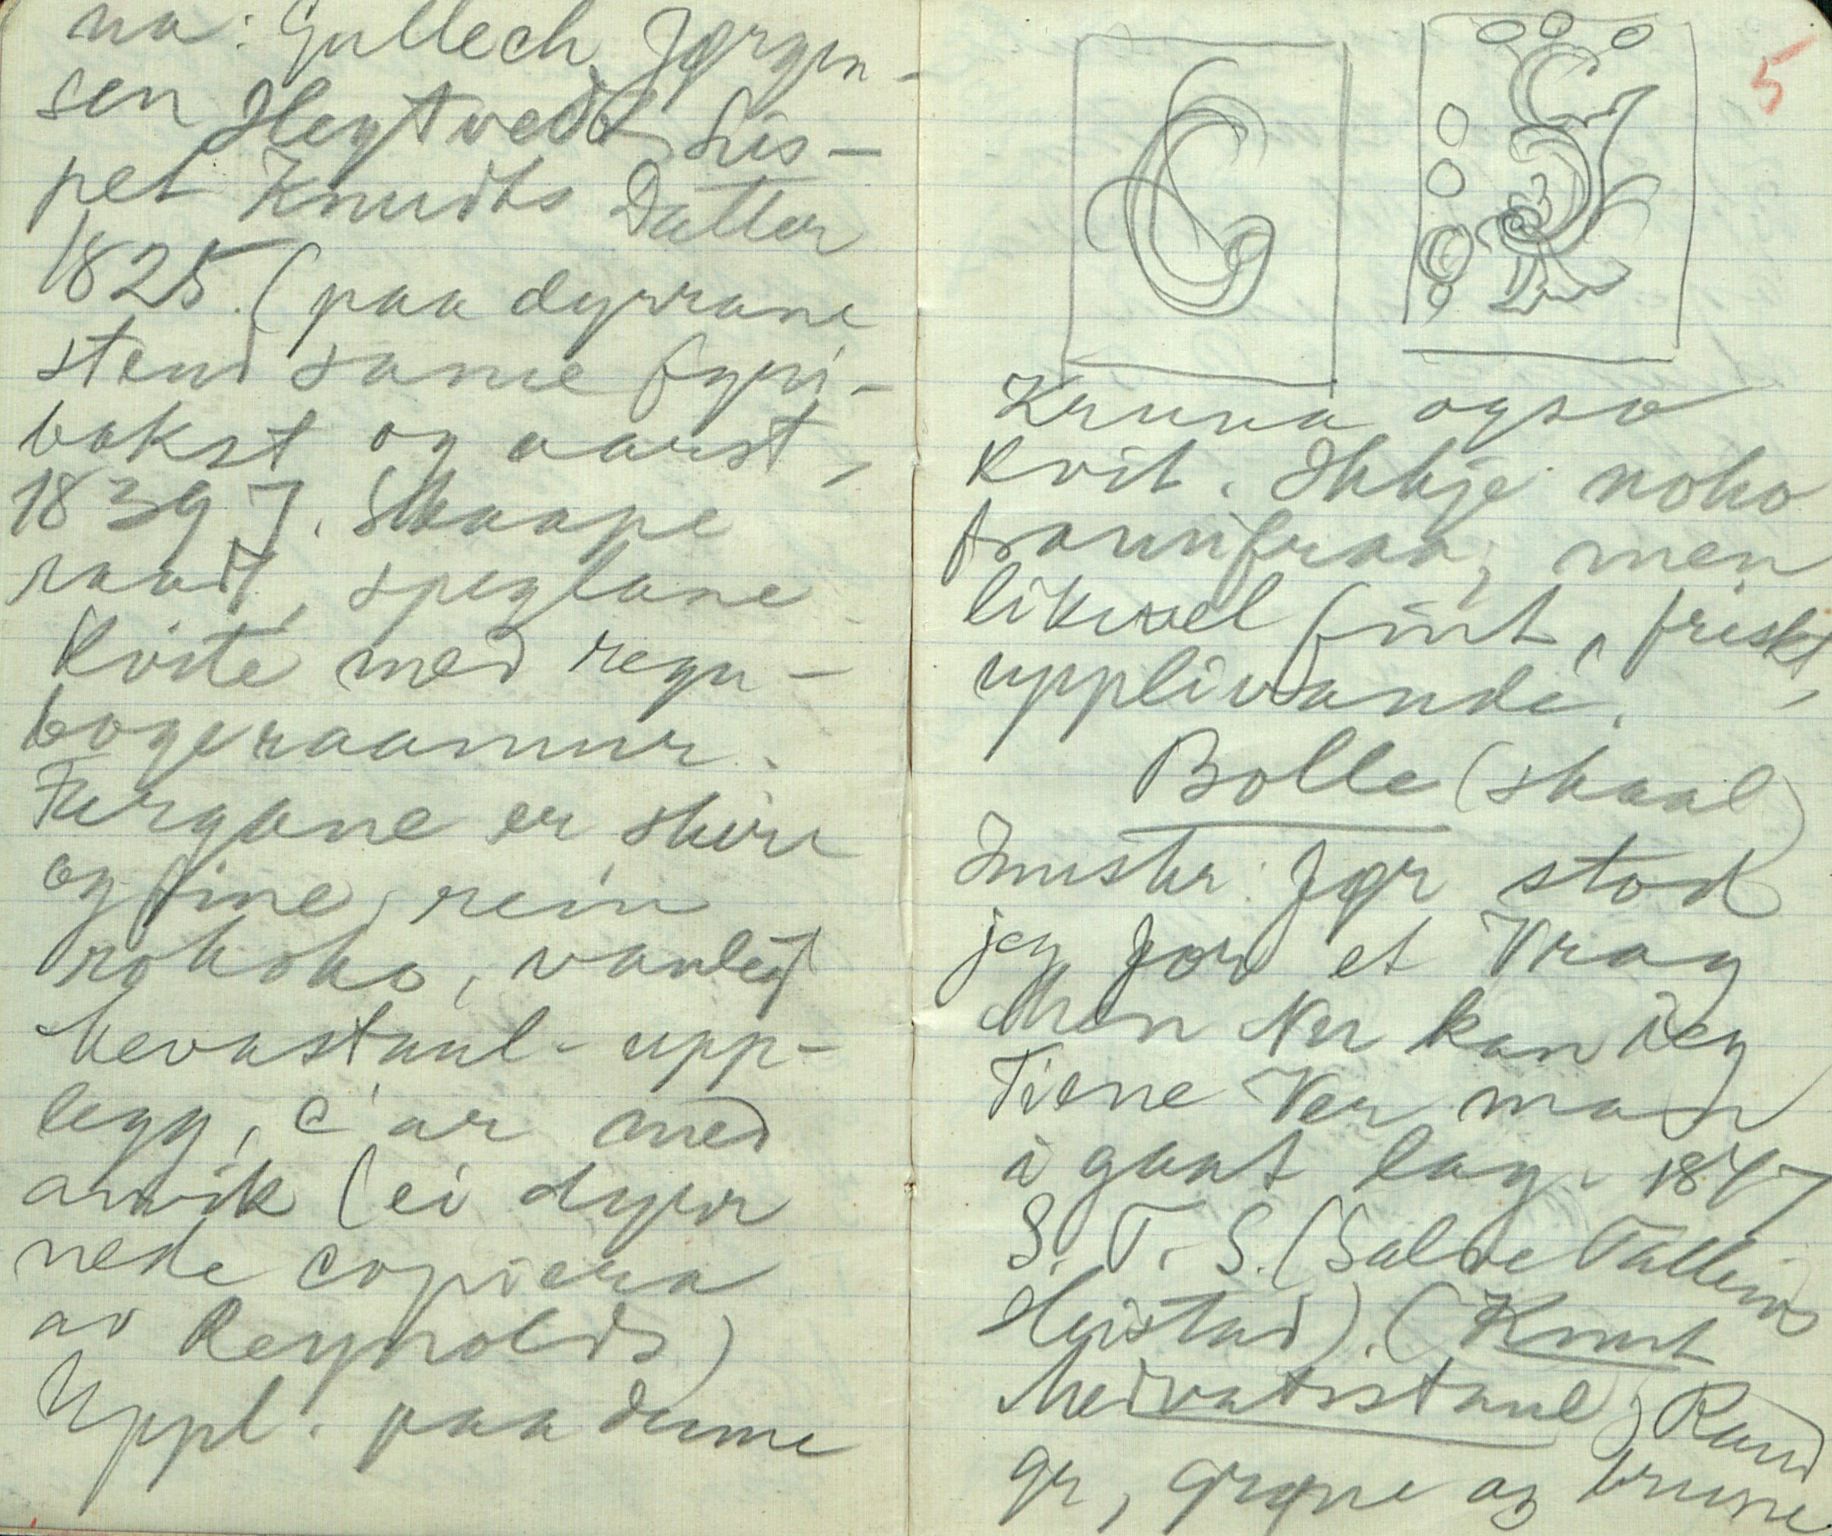 na: Gullech Jørgen-
sen Høgtvedt Lis-
pet Knudts Datter
1825. (paa dyrrane
stend same fyri-
bokst og aarst,
1839]. Skaape
raudt, speglane
kvite med regn-
bogeraamur.
Fargane er skire
og fine, rein
rokoko, vanleg
upp-
legg, C'ar med
(ei dyrr
nede copiera
av Reynolds)
Uppl. paa denne
5
Kruna ogso
kvit. Ikkje noko
framifraa, men
likevel fint, friskt,
upplivande.
Bolle (skaal)
Innskr: Før stod
jeg for et Vrag
Men Nu kan ieg
Tiene Ver man
i gaat lag. 1847
S. T. S. (Salve Talleivs
(Knut
Rand
gr, grøne og brune